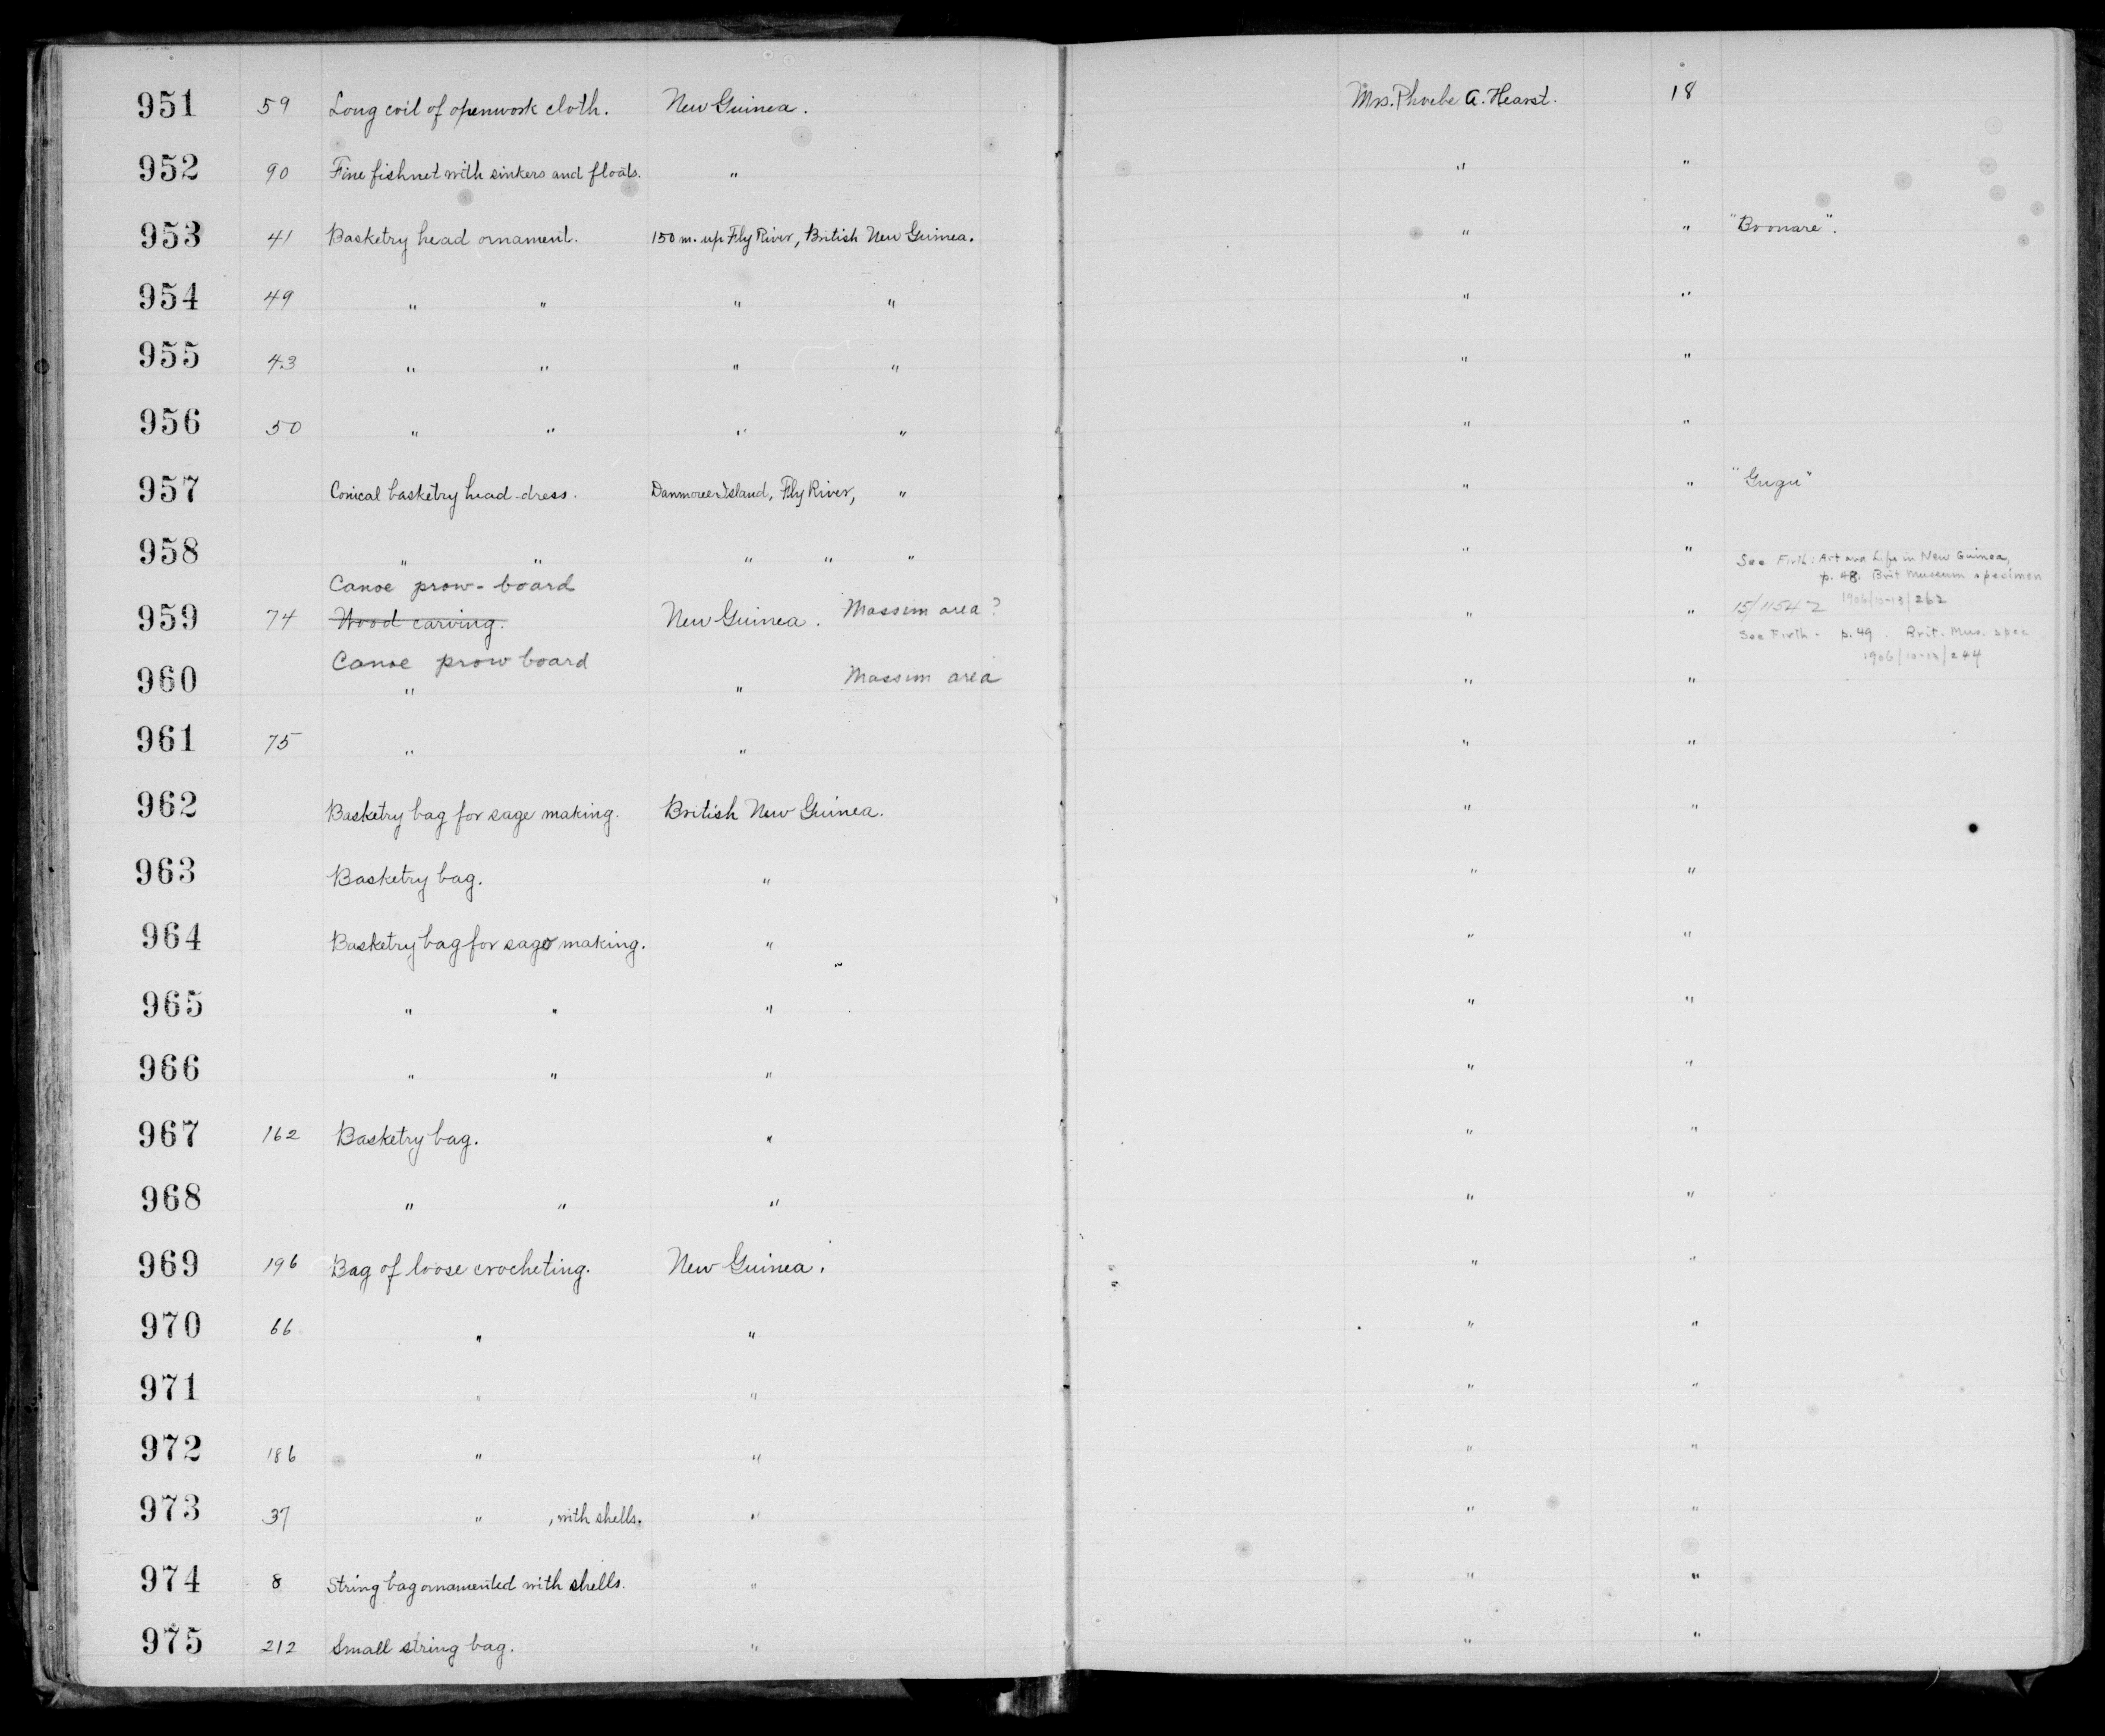 951 59 Long coil of openwork cloth. New Guinea. Mrs. Phoebe A. Hearst. 18
952 90 Fine fishnet with sinkers and floats. " " "
953 41 Basketry head ornament. 150 m. up Fly River, British New Guinea. " " "Boonare".
954 49 " " " " " "
955 43 " " " " " "
956 50 " " " " " "
957 Conical basketry head-dress. Island, Fly River, " " " "Gugu"
958 " " " " " " "
See Firth: Art and Life in New Guinea,
p. 48. Brit Museum specimen
Canoe prow-board
959 74 Wood carving. New Guinea. Massim area? " " 15/11542 1906/10-13/262
See Firth - p. 49. Brit. Mus. spec
1906/10-13/244
Canoe prow board
960 " " Massim area " "
961 75 " " " "
962 Basketry bag for sage making. British New Guinea. " "
963 Basketry bag. " " "
964 Basketry bag for sago making. " " "
965 " " " " "
966 " " " " "
967 162 Basketry bag. " " "
968 " " " " "
969 196 Bag of loose crocheting. New Guinea. " "
970 66 " " " "
971 " " " "
972 186 " " " "
973 37 " , with shells. " " "
974 8 String bag ornamented with shells. " " "
975 212 Small string bag. " " "